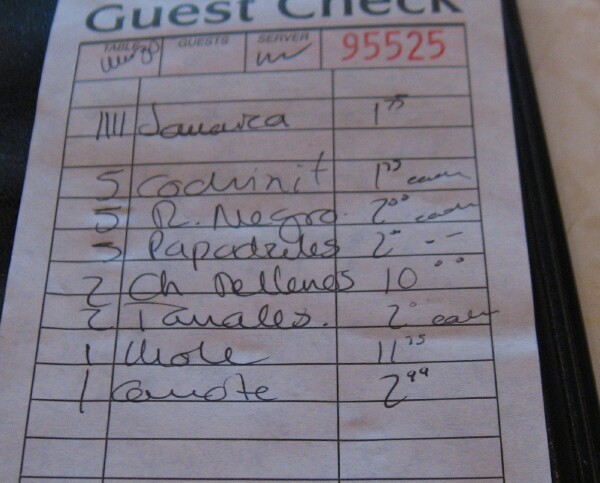 Guest Check
TABLE GUESTS SERVER 95525
IIII Jamaica 1 75
5 Cochinit 1 75 each
5 R. Negro. 2 00 each
3 Papadzules 2 00 - -
2 Ch Rellenos 10 00
2 Tamales. 2 each
1 Mole 11 75
1 Camote 2 99